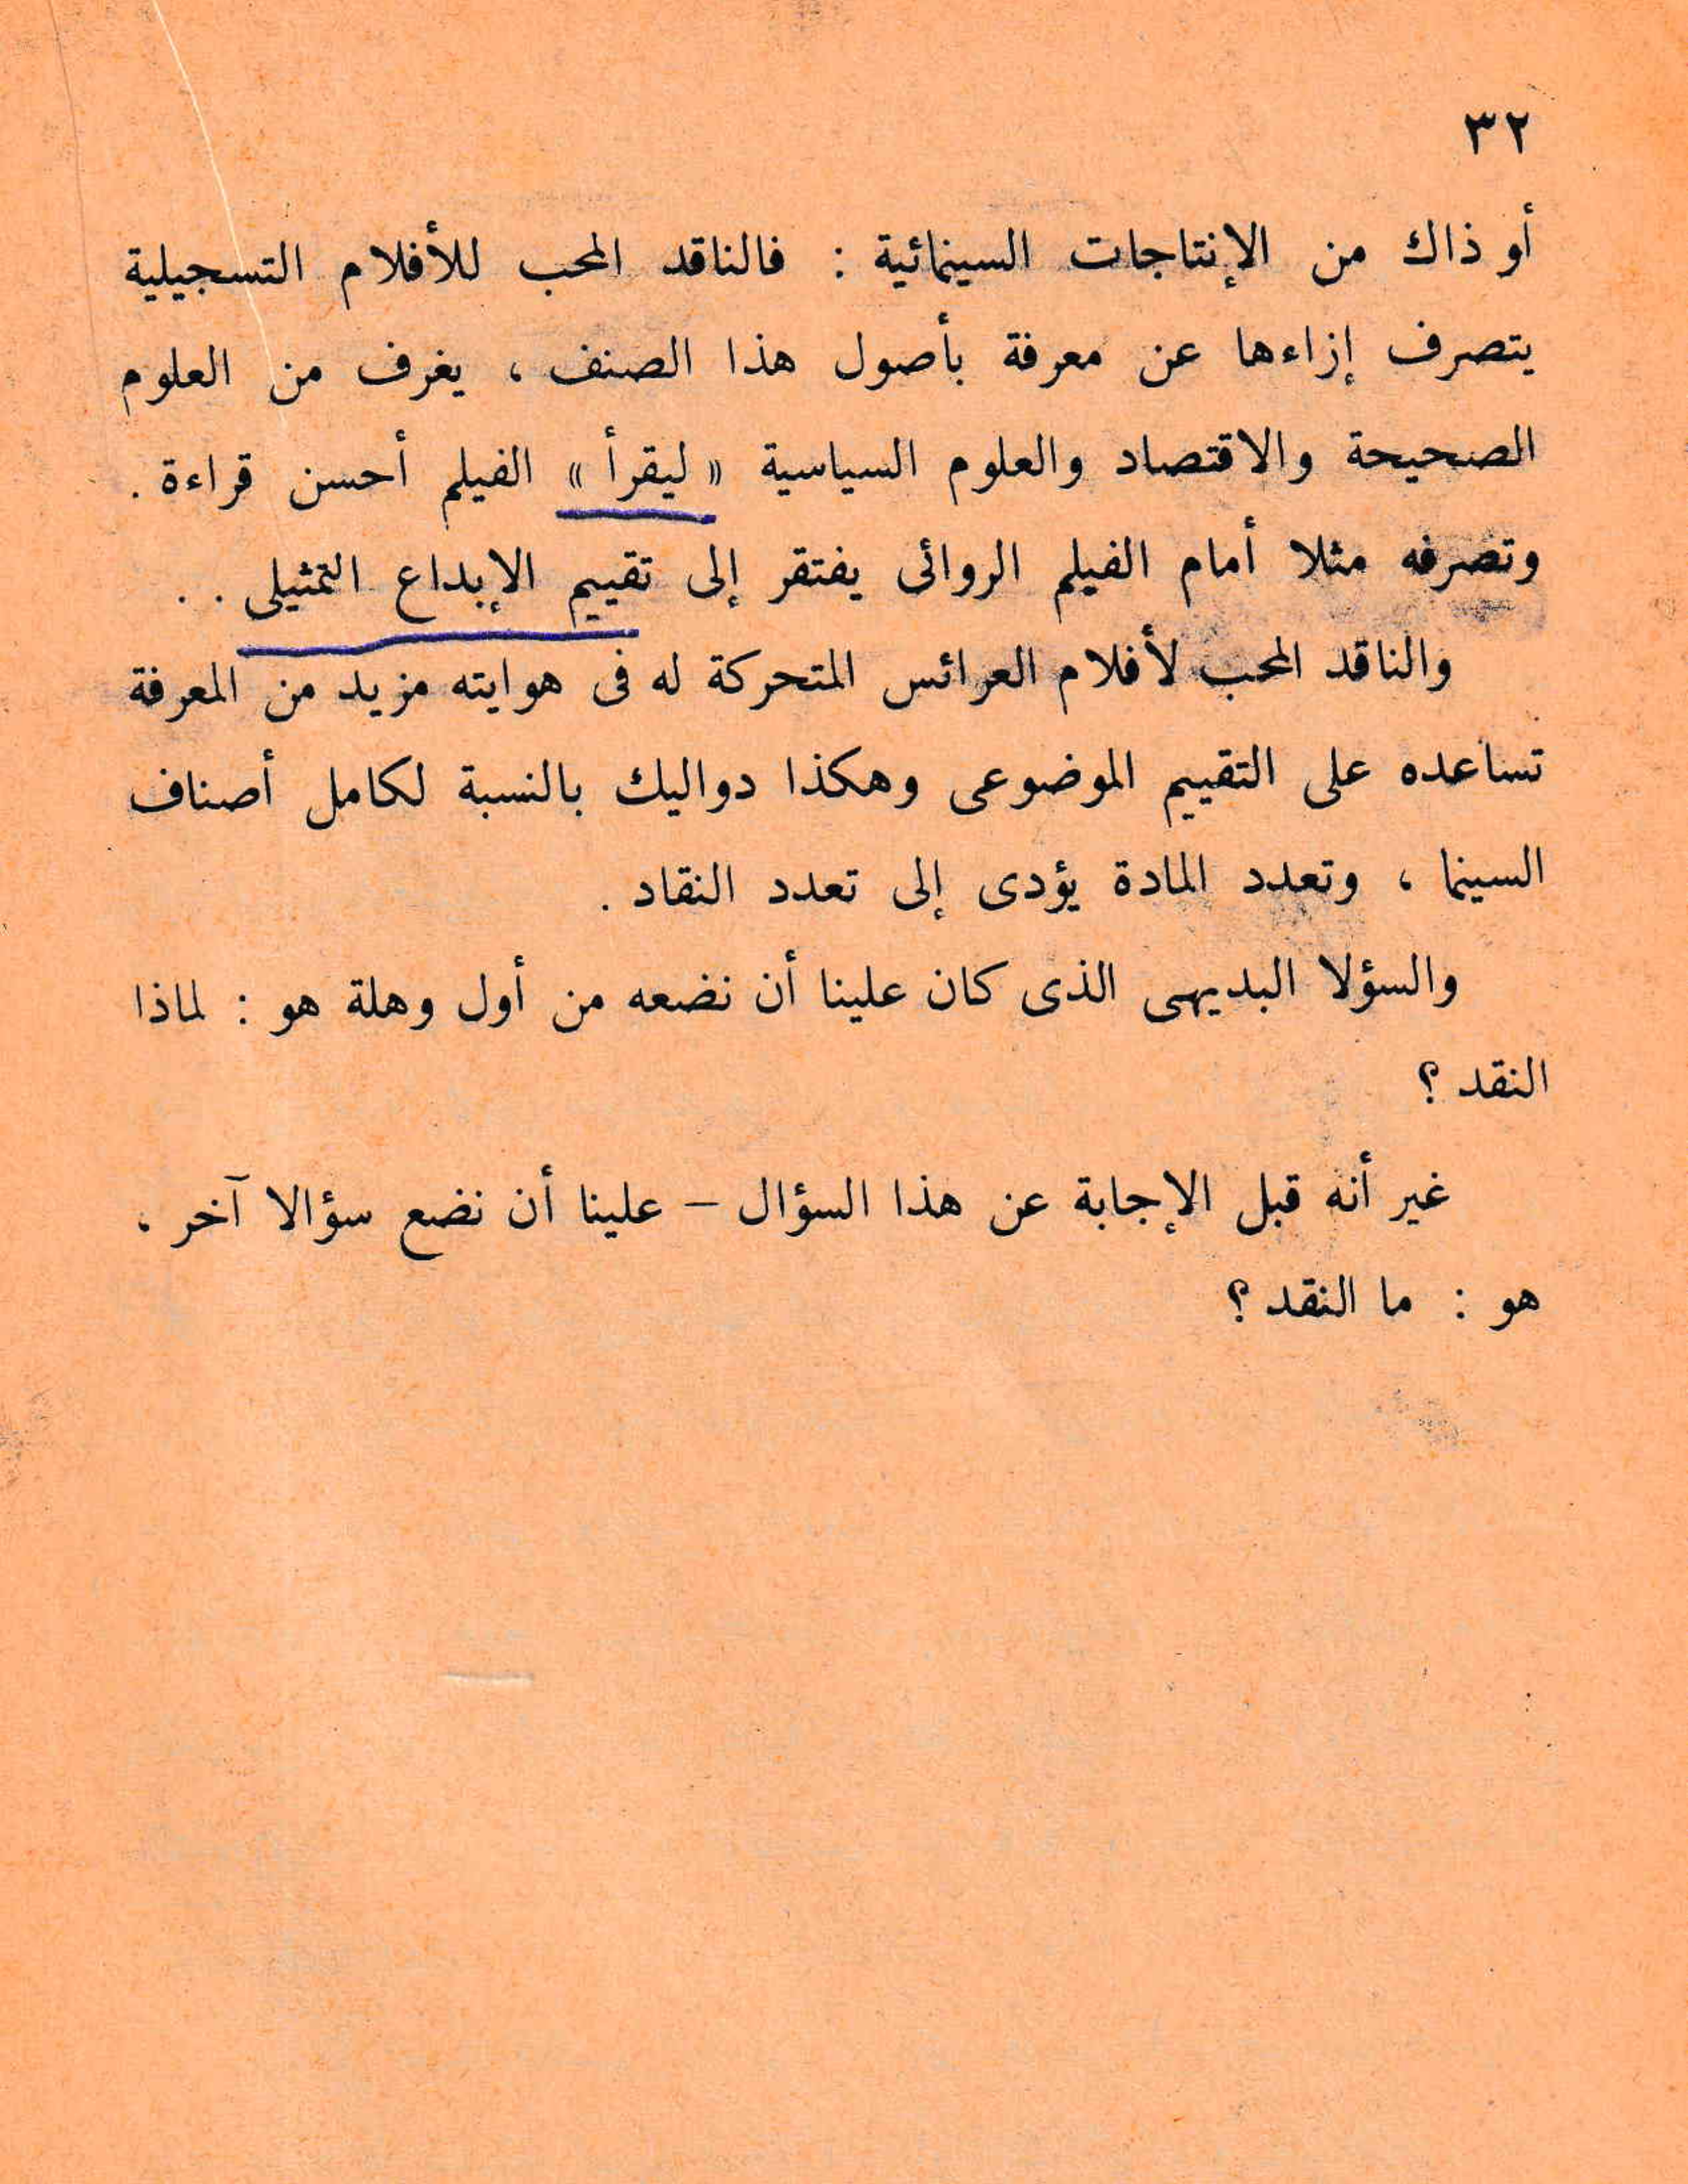 ٣٢
أو ذاك من الإنتاجات السينمائية : فالناقد المحب للأفلام التسجيلية
يتصرف إزاءها عن معرفة بأصول هذا الصنف ، يغرف من العلوم
الصحيحة والاقتصاد والعلوم السياسية « ليقرأ » الفيلم أحسن قراءة .
وتصرفه مثلا أمام الفيلم الروائى يفتقر إلى تقييم الإبداع التمثيلى . .
والناقد المحب لأفلام العرائس المتحركة له فى هوايته مزيد من المعرفة
تساعده على التقييم الموضوعى وهكذا دواليك بالنسبة لكامل أصناف
السينما ، وتعدد المادة يؤدى إلى تعدد النقاد .
والسؤلا البديهى الذى كان علينا أن نضعه من أول وهلة هو : لماذا
النقد ؟
غير أنه قبل الإجابة عن هذا السؤال – علينا أن نضع سؤالا آخر ،
هو : ما النقد ؟